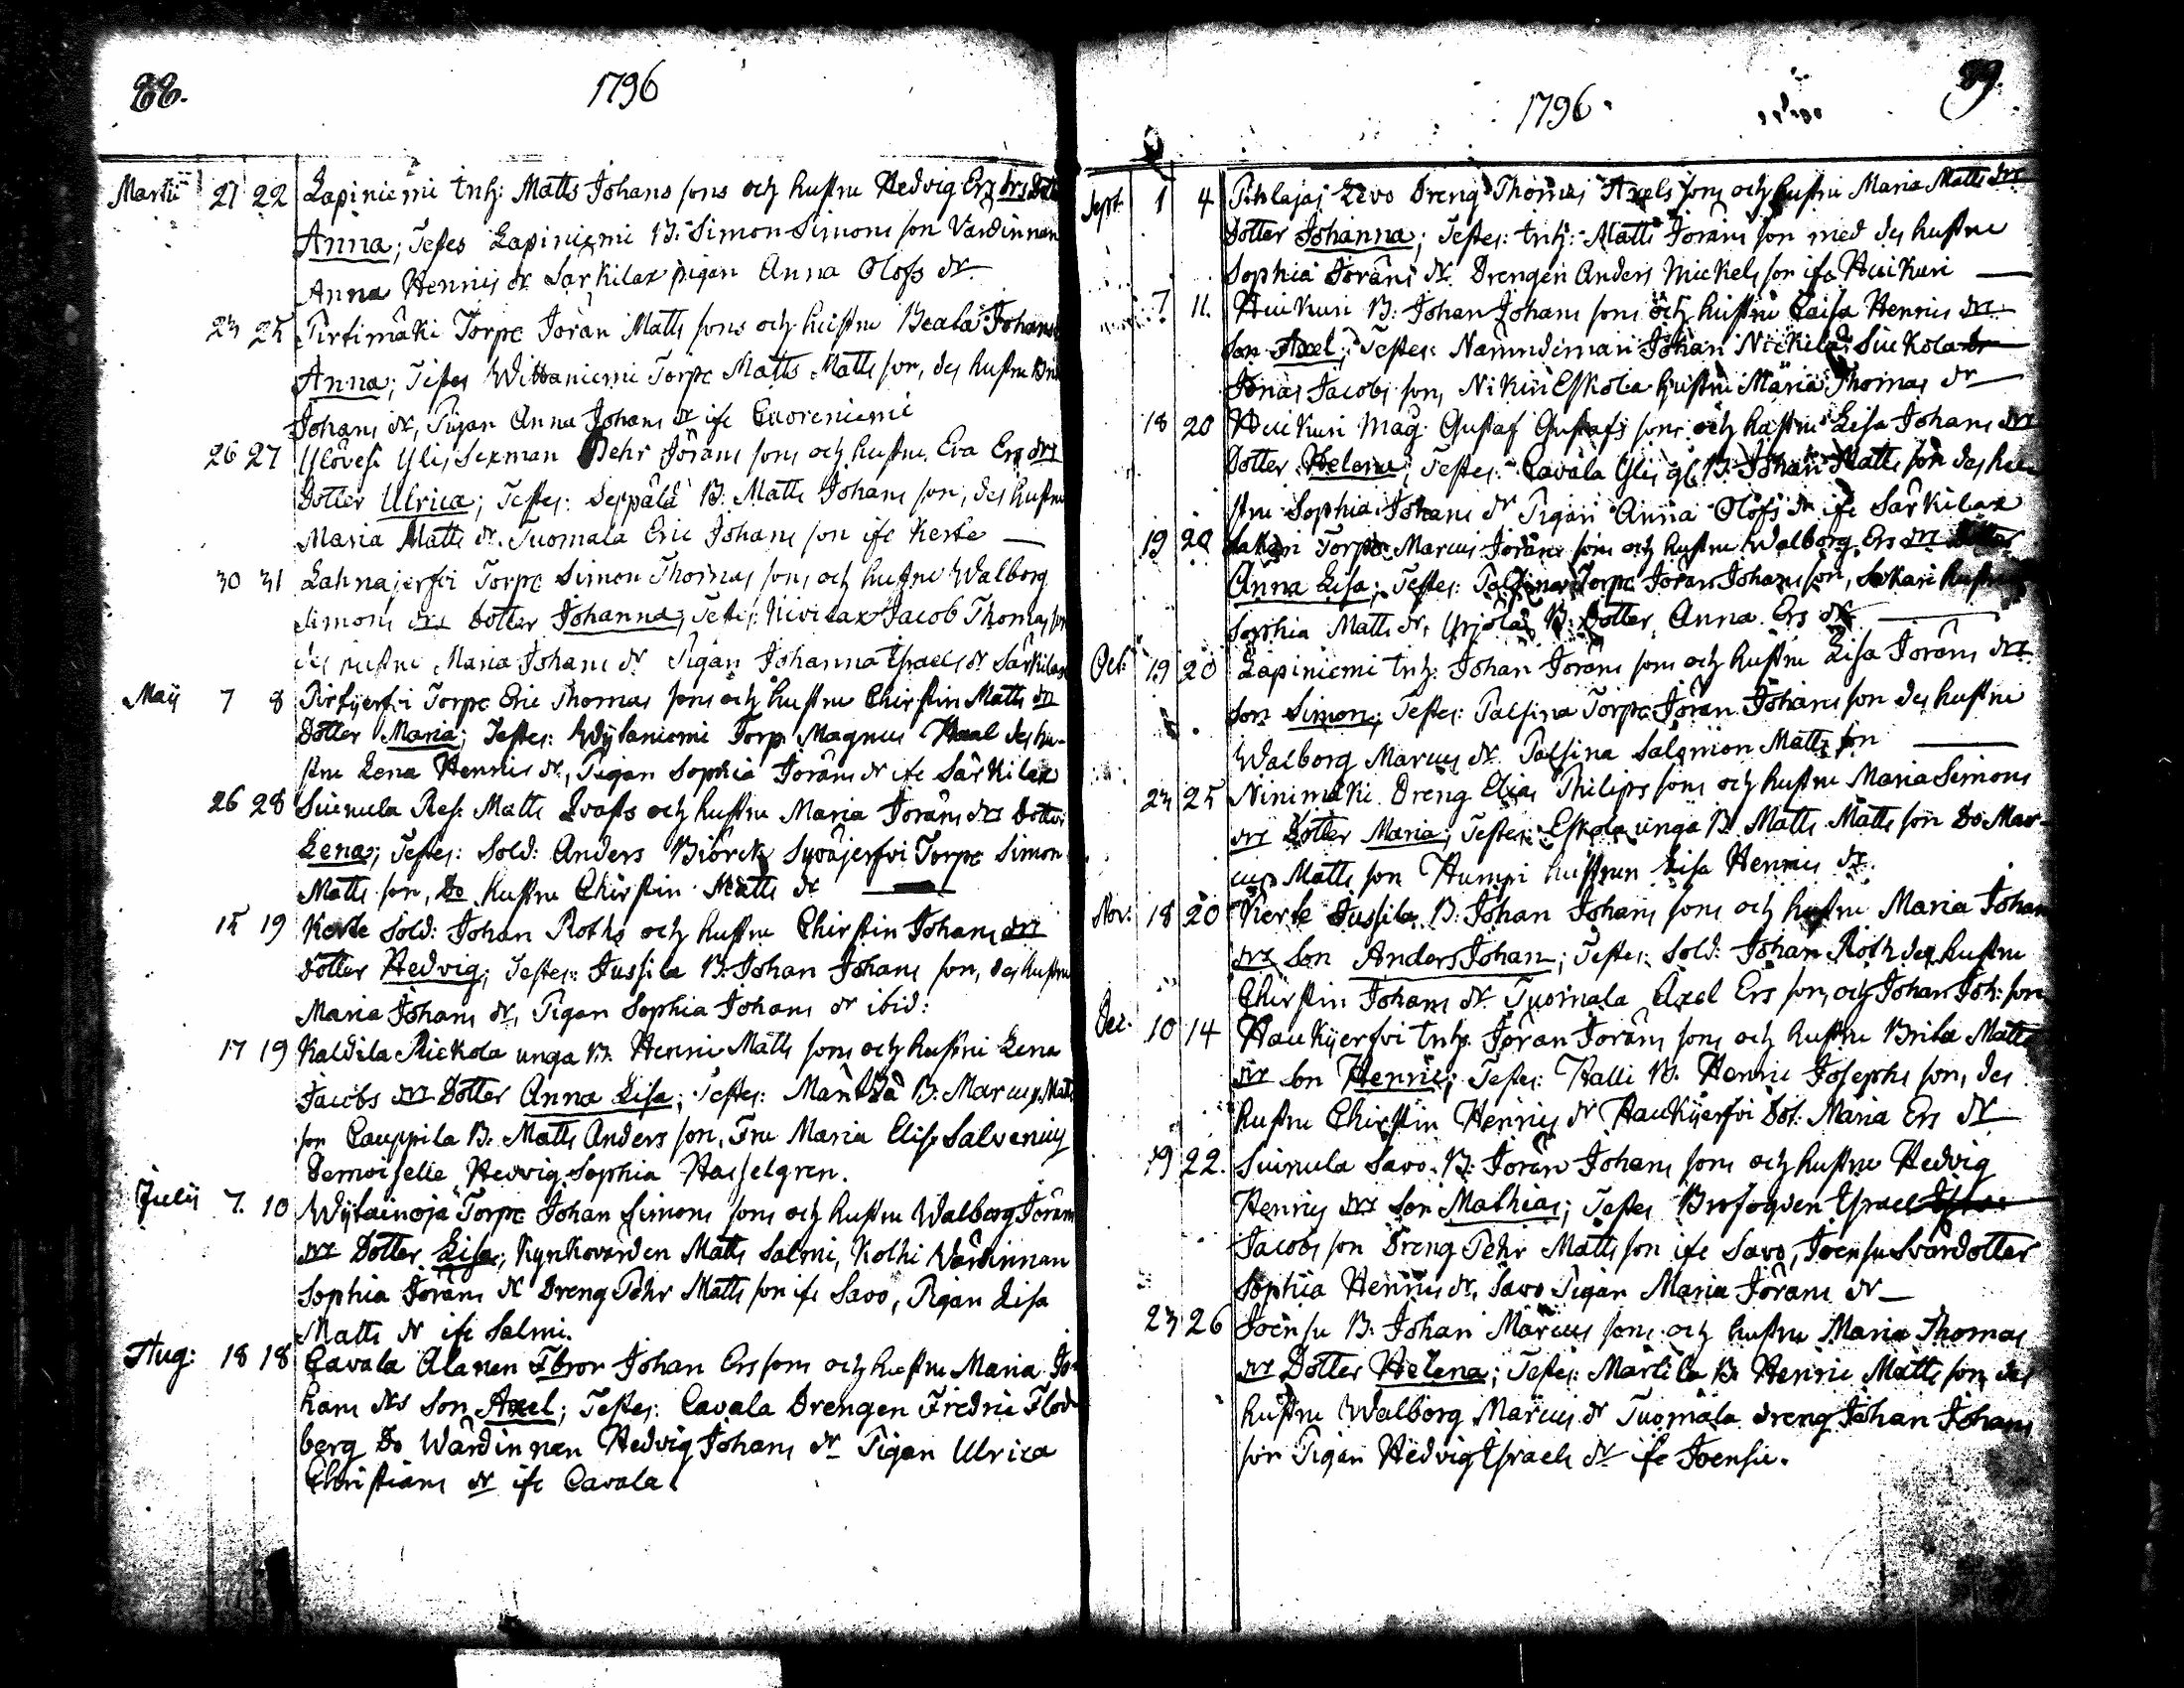 88.
1796
Martii 21 22 Lapiniemi Inh: Matts Johans sons och hustru Hedvig Ers drs
Anna; Testes Lapiniemi B: Simon Simons son Värdinnan
Anna Henrics dr Särkilax pigan Anna Olofs dr
23 25 Pirtimäki Torp: Jöran Matts sons och hustru Beata Johans
Anna; Testes Torp: Matts Matts son, des hustru
Johans dr, Pigan Anna Johans dr ifr Cuoreniemi
26 27 Ylövesi Ylis Sexman Pehr Jörans sons och hustru Eva Ers drs
Dotter Ulrica; Testes: Seppälä B: Matts Johans son, des hustru
Maria Matts dr. Tuomala Eric Johans son ifr Kerte
30 31 Lahnajerfvi Torp: Simon Thomas sons och hustru Walborg
Simons drs Dotter Johanna; Testes: Kivilax Jacob Thomas son
des hustru Maria Johans dr Pigan Johanna Israels dr Särkilax
Maij 7 8 Pirtijerfvi Torp: Eric Thomas sons och hustru Chirstin Matts drs
Dotter Maria; Testes: Wytaniemi Torp: Magnus des hu-
stru Lena Henrics dr, Pigan Sophia Jörans dr ifr Särkilax
26 28 Suenula Res: Matts och hustru Maria Jörans drs Dotter
Lena; Testes: Sold: Anders Biörck Syväjerfvi Torp: Simon
Matts son, Do hustru Chirstin Matts dr
15 19 Kerte Sold: Johan Roths och hustru Chirstin Johans drs
Dotter Hedvig; Testes: Jussila B: Johan Johans son, des hustru
Maria Johans dr, Pigan Sophia Johans dr ibid:
17 19 Kaldila Rickola unga B. Henric Matts sons och hustru Lena
Jacobs drs Dotter Anna Lisa; Testes: Mäntilä B: Marcus Matts
son Cauppila B: Matts Anders son, Fru Maria Elis: Salvenius
Demoiselle Hedvig Sophia Hasselgren.
Julij 7. 10 Wytainoja Torp: Johan Simons sons och hustru Walborg Jörans
drs Dotter Lisa; Kyrkovärden Matts Salmi, Kolhi Värdinnan
Sophia Jörans dr Dreng Pehr Matts son ifr Savo, Pigan Lisa
Matts dr ifr Salmi.
Aug: 18 18 Cavala Alanen Fbror Johan Ers sons och hustru Maria Jo-
hans drs Son Axel; Testes: Cavala Drengen Fredric Flod-
berg Do Wärdinnan Hedvig Johans dr Pigan Ulrica
Christians dr ifr Cavala.
89.
1796
Sept: 1 4 Pihlajas Levo Dreng Thomas Axels sons och hustru Maria Matts drs
Dotter Johanna; Testes: Inh: Matts Jörans son med des hustru
Sophia Jörans dr Drengen Anders Mickels son ifr Huikuri
7 11. Huikuri B: Johan Johans sons och hustru Caisa Henrics drs
Son Axel; Testes: Nämndeman Johan Nickila, Suckola
Jonas Jacobs son, Nikun Eskola hustru Maria Thomas dr
18 20 Huikuri Mag: Gustaf Gustafs sons och hustru Lisa Johans drs
Dotter Helena; Testes: Cavala Ylis B: Johan Matts son des hu-
stru Sophia Johans dr Pigan Anna Olofs dr ifr Särkilax
19 20 Sakari Torp: Marcus Jörans sons och hustru Walborg Ers drs Dotter
Anna Lisa; Testes: Palsina Torp: Jöran Johans son, Sakari hustru
Sophia Matts dr, Yrjölä B: Dotter Anna Ers dr
Oct: 19 20 Lapiniemi Inh: Johan Jörans sons och hustru Lisa Jörans drs
Son Simon; Testes: Palsina Torp: Jöran Johans son des hustru
Walborg Marcus dr. Palsina Salomon Matts son
23 25 Ninimäki Dreng Elias Philips sons och hustru Maria Simons
drs Dotter Maria; Testes: Eskola unga B. Matts Matts son Do Mar-
cus Matts son Humpi hustrun Lisa Henrics dr.
Nov: 18 20 Kerte Jussila B: Johan Johans sons och hustru Maria Johans
drs Son Anders Johan; Testes: Sold: Johan Roth des hustru
Chirstin Johans dr Tuomala Axel Ers son, och Johan Joh: son
Dec: 10 14 Haukijerfvi Inh: Jöran Jörans sons och hustru Brita Matts
drs Son Henric; Testes: Halli B. Henric Josephs son, des
hustru Chirstin Henrics dr Haukijerfvi Dot: Maria Ers dr
19 22. Suinula Savo B: Jöran Johans sons och hustru Hedvig
Henrics drs Son Mathias; Testes Brofogden Israel
Jacobs son Dreng Pehr Matts son ifr Savo, Joensu Svärdotter
Sophia Henrics dr, Savo Pigan Maria Jörans dr
23 26 Joensu B: Johan Marcus sons och hustru Maria Thomas
drs Dotter Helena; Testes: Martila B: Henric Matts son, des
hustru Walborg Marcus dr Tuomala dreng Johan Johans
son Pigan Hedvig Israels dr ifr Joensu.